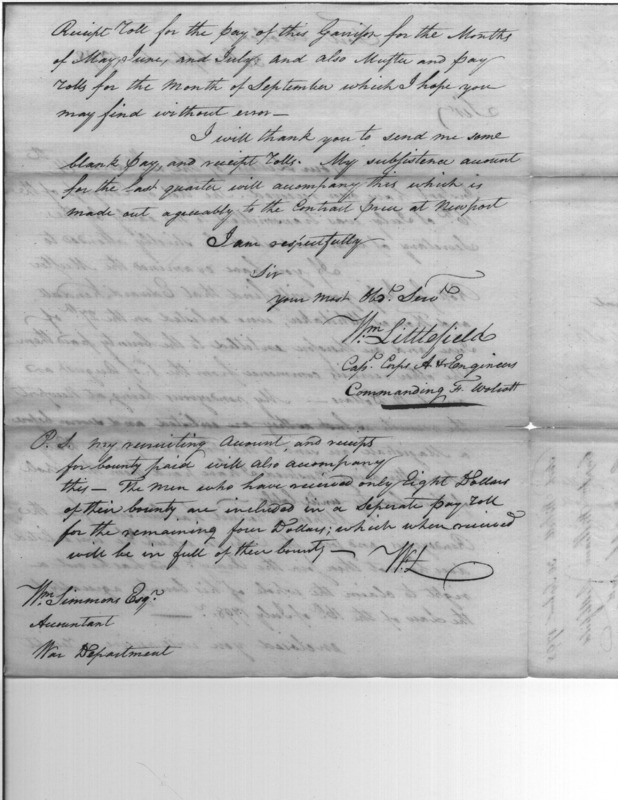 Receipt Roll for the pay of this Garrison for the Months
of May, June, and July, and also Muster and pay
rolls for the month of September which I hope you
may find without error—
I will thank you to send me some
blank pay, and receipt rolls. My subsistence account
for the last quarter will acompany this which is
made out agreeably to the Contract price at Newport
I am respectfully
Sir
your most Obt. Servt.
Wm Littlefield
Capt. Corps A & Engineers
Commanding Ft. Wolcott
P. S. my recruiting account, and receipts
for bounty paid will also acompany
this— The men who have received only Eight Dollars
of their bounty are included in a Seperate pay roll
for the remaining four Dollars; which when received
will be in full of their bounty—
W. L
Wm. Simmons Esqr.
Accountant
War Department